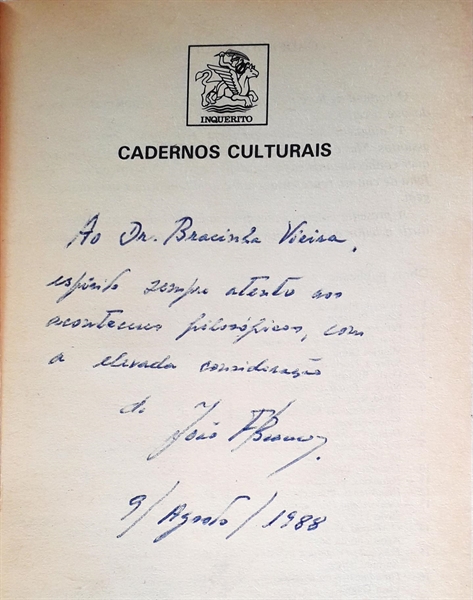 INQUERITO
CADERNOS CULTURAIS
Ao Dr. Bracinha Vieira,
espírito sempre atento aos
aconteceres filosóficos, com
a elevada consideração
de
João
9/Agosto/1988